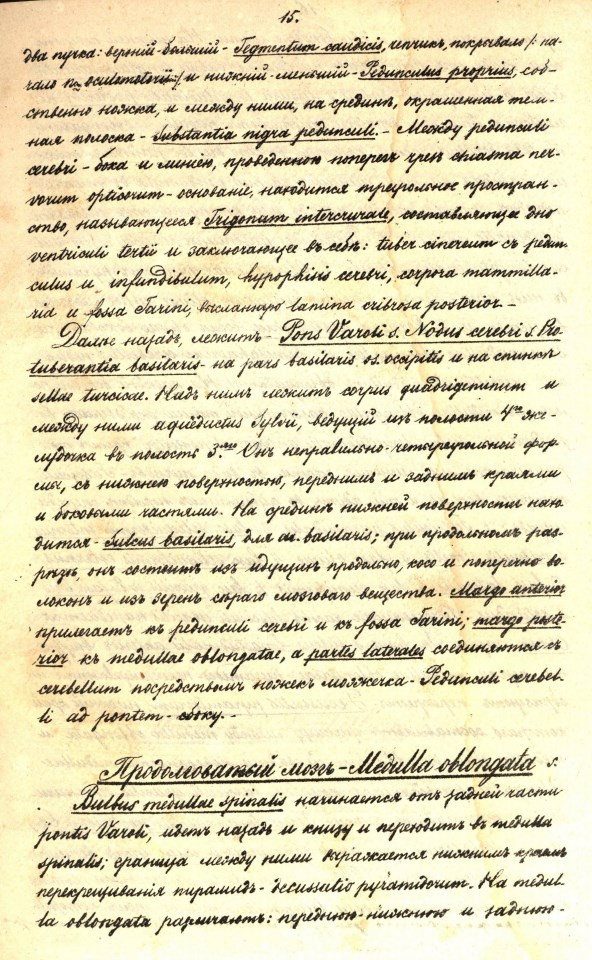 15.
два пучка: верхній-большій - Tegmentum caudicis, чепчикъ, покрывало /: на-
чало n. oculomotorii :/ и нижній-меньшій - Pedunculus proprius, соб-
ственно ножка, и между ними, на срединѣ, окрашенная тем-
ная полоска - Substantia nigra pedunculi. - Между pedunculi
cerebri - бока и линіею, проведенною поперегъ чрезъ chiasma ner-
vorum opticorum - основаніе, находится треугольное простран-
ство, называющееся Trigonum intercrurale, составляющее дно
ventriculi tertii и заключающее въ себѣ: tuber cinereum съ pedun-
culus и infundibulum, hypophisis cerebri, corpora mammilla-
ria и fossa Tarini, выстланную lamina cribrosa posterior. -
Далѣе назадъ, лежитъ - Pons Varoli s. Nodus cerebri s. Pro-
tuberantia basilaris - на pars basilaris os. occipitis и на спинкѣ
sellae turcicae. Надъ нимъ лежитъ corpus quadrigeminum и
между ними aquëductus Sylvii, ведущій изъ полости 4го же-
лудочка въ полость 3.яго Онъ неправильно-четыреугольной фор-
мы, съ нижнею поверхностью, переднимъ и заднимъ краями
и боковыми частями. На срединѣ нижней поверхности нахо-
дится - Sulcus basilaris, для ar. basilaris; при продольномъ раз-
рѣзѣ, онъ состоитъ изъ идущихъ продольно, косо и поперечно во-
локонъ и изъ зеренъ сѣраго мозговаго вещества. Margo anterior
прилегаетъ къ pedunculi cerebri и къ fossa Tarini; margo poste-
rior къ medullae oblongatae, а partes laterales соединяются съ
cerebellum посредствомъ ножекъ мозжечка - Pedunculi cerebel-
li ad pontem - сбоку. -
Продолговатый мозгъ - Medulla oblongata s.
Bulbus medullae spinalis начинается отъ задней части
pontis Varoli, идетъ назадъ и книзу и переходитъ въ medulla
spinalis; граница между ними выражается нижнимъ краемъ
перекрещиванія пирамидъ - decussatio pyramidorum. На medul-
la oblongata различаютъ: переднюю-нижнюю и заднюю-